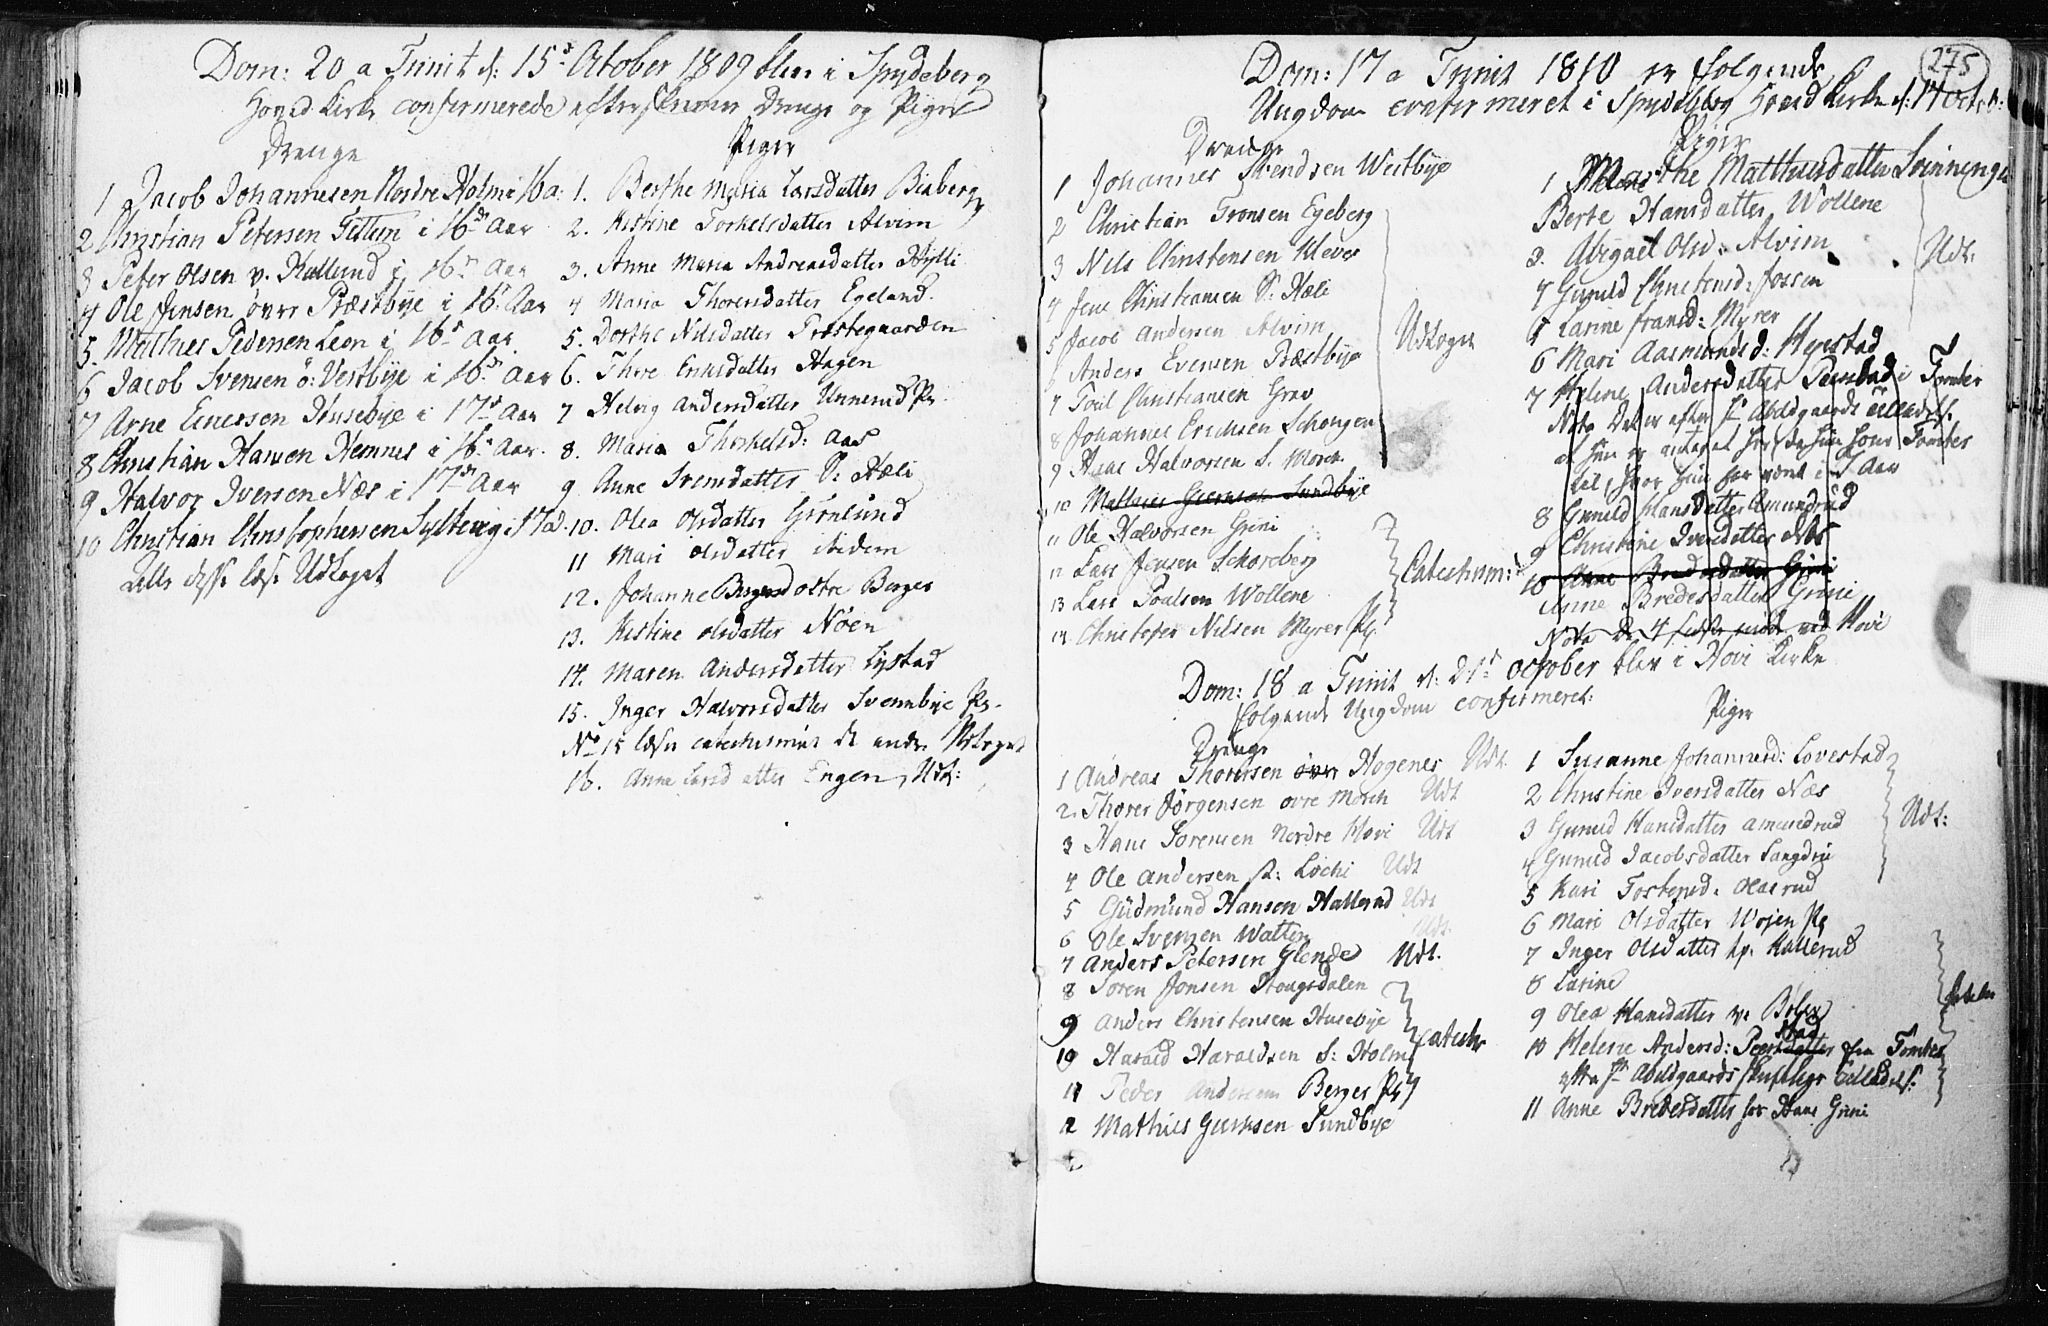 Dom: 20 a Trinit d: 15d October 1809 blev i Spydeberg
Hoved Kirke confirmerede efterskrevne Drenge og Piger
Drenge
1 Jacob Johannesen Nordre Holm i 16 a:
2 Christian Petersen i 16de Aar
3 Peter Olsen v. Kallerud i 16de Aar
4 Ole Jensen övre Præstbye i 16de Aar
5. Mathies Pedersen Leen i 16de Aar
6 Jacob Svensen ö: Vestbye i 16de Aar
7 Arne Einersen Husebye i 17de Aar
8 Christian Hansen Hemnes i 16de Aar.
9 Halvor Iversen Næs i 17de Aar
10 Christian Christophersen i 17 a.
Alle disse læse Udtoget
Piger
1. Berthe Maria Larsdatter Biaberg
2. Kistine Torkelsdatter Alvim
3. Anne Maria Andreasdatter Hylli
4 Maria Thorersdatter Egeland.
5. Dorthe Nilsdatter Præstegaarden
6. Thore Eriksdatter Hagen
7 Helvig Andersdatter Unnerud Pg.
8. Maria Thorkelsd: Aas
9 Anne Svensdatter S: Hæli
10. Olea Olsdatter Grönlund
11 Mari Olsdatter
12. Johanne Berger
13. Kistine Olsdatter Nöen
14. Maren Andersdatter Lystad
15. Inger Halvorsdatter Svennbye Pg.
No 15 læser catechismus de andre Udtoget
16. Anne Larsdatter Engen, Udt:
275
Dom: 17 a Trinit 1810 er følgende
Ungdom confirmeret i Spydeberg Hoved Kirke d: 14 Octob:
Drenge
1 Johannes Svendsen Westbye
2 Christian Tronsen Egeberg
3 Nils Christensen Kleven
4 Jens Christiansen S: Hæli
5 Jacob Andersen Alvim
6 Anders Evensen Præstbye
7 Toril Christiansen Grav
8 Johannes Erichsen Schongen
9 Hans Halvorsen S. Mörch
Udtoget
10 Mathies Sundbye
11 Ole Halvorsen Grini
12 Lars Jensen Schareberg
13 Lars Poulsen Wollene
14 Christopher Nilsen Myrer Pg.
Catechism:
Piger
1 Marthe Matthisdatter Svinninge
Berte Hansdatter Wollene
3. Abigael Olsd: Alvim
4 Gunild Christensd: Fossen
5 Karine Fransd: Myrer
Udt:
6 Mari Aasmundsd: Hyrstad
7 Helene Andersdatter i Tomter
Nota Det er efter Hr Abildgaards
at hun er antaget her, da hun hører Tomter
til, hvor hun har været i et Aar
8 Gunild Hansdatter Amundrud
9 Christine Iversdatter Næs
10 Anne Bredesdatter Grini
Anne Bredesdatter Grini
Nota De 4 sidste ved Hovi
Dom: 18 a Trinit d: 21d October blev i Hovi Kirke
følgende Ungdom confirmeret:
Drenge
1 Andreas Thoresen övre Hogenes Udt.
2. Thorer Jørgensen övre Mörch Udt
3 Hans Sörensen Nordre Hovi Udt
4 Ole Andersen S: Löchi Udt
5 Gudmund Hansen Hallerud Udt
6 Ole Svensen Watten Udt.
7 Anders Petersen Glende Udt.
8 Sören Jonsen Stougsdalen
9 Anders Christensen Husebye
10 Harald Haraldsen S: Holm
11 Peder Andersen Berger Pg
12 Mathies Gulliksen Sundbye
Catechs
Piger
1 Susanne Johannesd: Lovestad
2 Christine Iversdatter Næs
3 Gunild Hansdatter Amundrud
4 Gunild Jacobsdatter Langdrie
Udt:
5 Kari Tostensd: Olasrud
6 Mari Olsdatter Wojen Pg
7 Inger Olsdatter v. Kallerud
8 Karine
9 Olea Hansdatter v. Böler
10 Helene Andersd: fra Tomter
efter Hr Abildgaards skriftlige Tilladels:
11 Anne Bredesdatter for Hans Grini